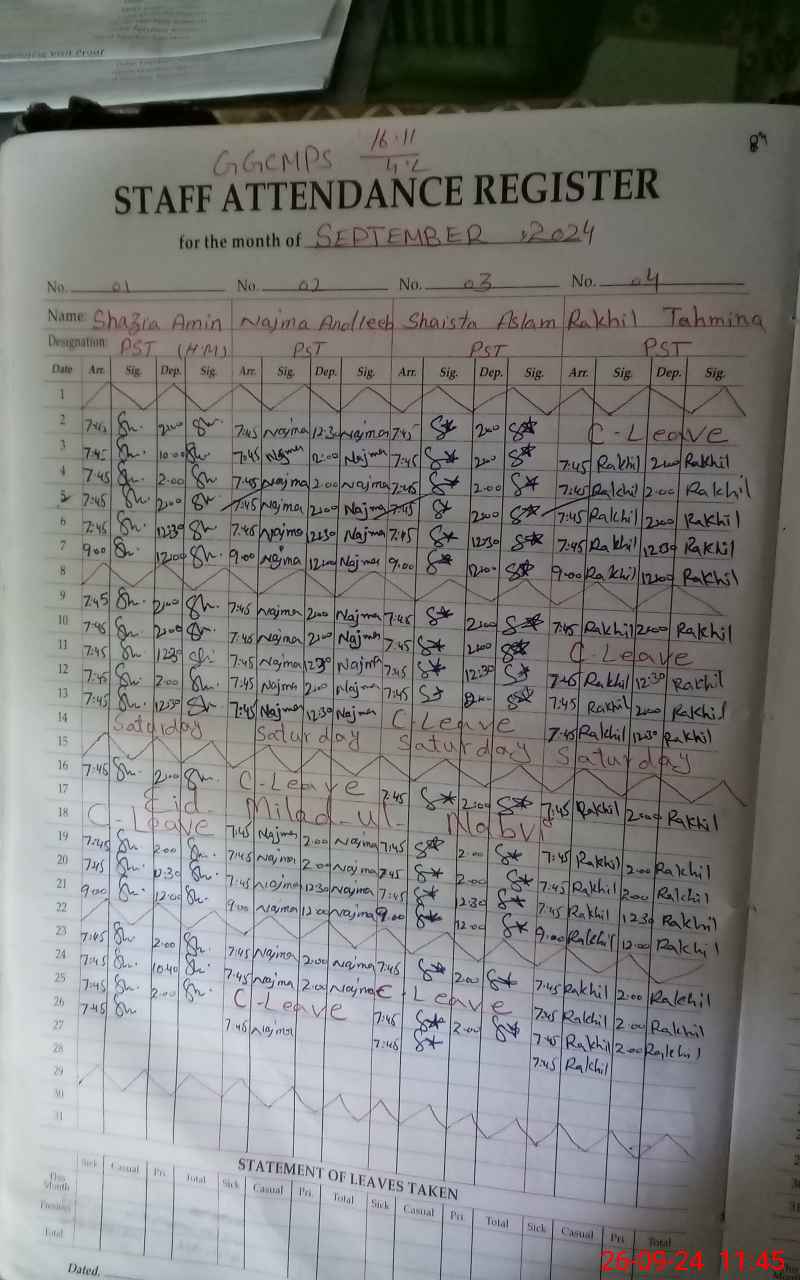 GGCMPS 16.11
STAFF ATTENDANCE REGISTER
for the month of SEPTEMBER ,2024
No. 01 No. 02 No. 03 No. 04
Name: Shazia Amin Najma Andleeb Shaista Aslam Rakhil Tahmina
Designation: PST (HM) PST PST PST
Date Arr. Sig. Dep. Sig. Arr. Sig. Dep. Sig. Arr. Sig. Dep. Sig. Arr. Sig. Dep. Sig.
1
2 7:45 2:00 7:45 Najma 12:30 Najma 7:45 2:00 C-Leave
3 7:45 10:00 7:45 Najma 2:00 Najma 7:45 2:00 7:45 Rakhil 2:00 Rakhil
4 7:45 2:00 7:45 Najma 2:00 Najma 7:45 2:00 7:45 Rakhil 2:00 Rakhil
5 7:45 2:00 7:45 Najma 2:00 Najma 7:45 2:00 7:45 Rakhil 2:00 Rakhil
6 7:45 12:30 7:45 Najma 12:30 Najma 7:45 12:30 7:45 Rakhil 12:30 Rakhil
7 9:00 12:00 9:00 Najma 12:00 Najma 9:00 12:00 9:00 Rakhil 12:00 Rakhil
8
9 7:45 2:00 7:45 Najma 2:00 Najma 7:45 2:00 7:45 Rakhil 2:00 Rakhil
10 7:45 2:00 7:45 Najma 2:00 Najma 7:45 2:00 C-Leave
11 7:45 12:30 7:45 Najma 12:30 Najma 7:45 12:30 7:45 Rakhil 12:30 Rakhil
12 7:45 2:00 7:45 Najma 2:00 Najma 7:45 2:00 7:45 Rakhil 2:00 Rakhil
13 7:45 12:30 7:45 Najma 12:30 Najma C-Leave 7:45 Rakhil 12:30 Rakhil
14 Saturday Saturday Saturday Saturday
15
16 7:45 2:00 C-Leave 7:45 2:00 7:45 Rakhil 2:00 Rakhil
17 Eid- Milad-ul- Nabvi
18 C-Leave 7:45 Najma 2:00 Najma 7:45 2:00 7:45 Rakhil 2:00 Rakhil
19 7:45 2:00 7:45 Najma 2:00 Najma 7:45 2:00 7:45 Rakhil 2:00 Rakhil
20 7:45 12:30 7:45 Najma 12:30 Najma 7:45 12:30 7:45 Rakhil 12:30 Rakhil
21 9:00 12:00 9:00 Najma 12:00 Najma 9:00 12:00 9:00 Rakhil 12:00 Rakhil
22
23 7:45 2:00 7:45 Najma 2:00 Najma 7:45 2:00 7:45 Rakhil 2:00 Rakhil
24 7:45 10:40 7:45 Najma 2:00 Najma C-Leave 7:45 Rakhil 2:00 Rakhil
25 7:45 2:00 C-Leave 7:45 2:00 7:45 Rakhil 2:00 Rakhil
26 7:45 7:45 Najma 7:45 7:45 Rakhil
27
28
29
30
31
STATEMENT OF LEAVES TAKEN
Sick Casual Pri. Total Sick Casual Pri. Total Sick Casual Pri. Total Sick Casual Pri. Total
This Month
Previous
Total
Dated.
26-09-24 11:45